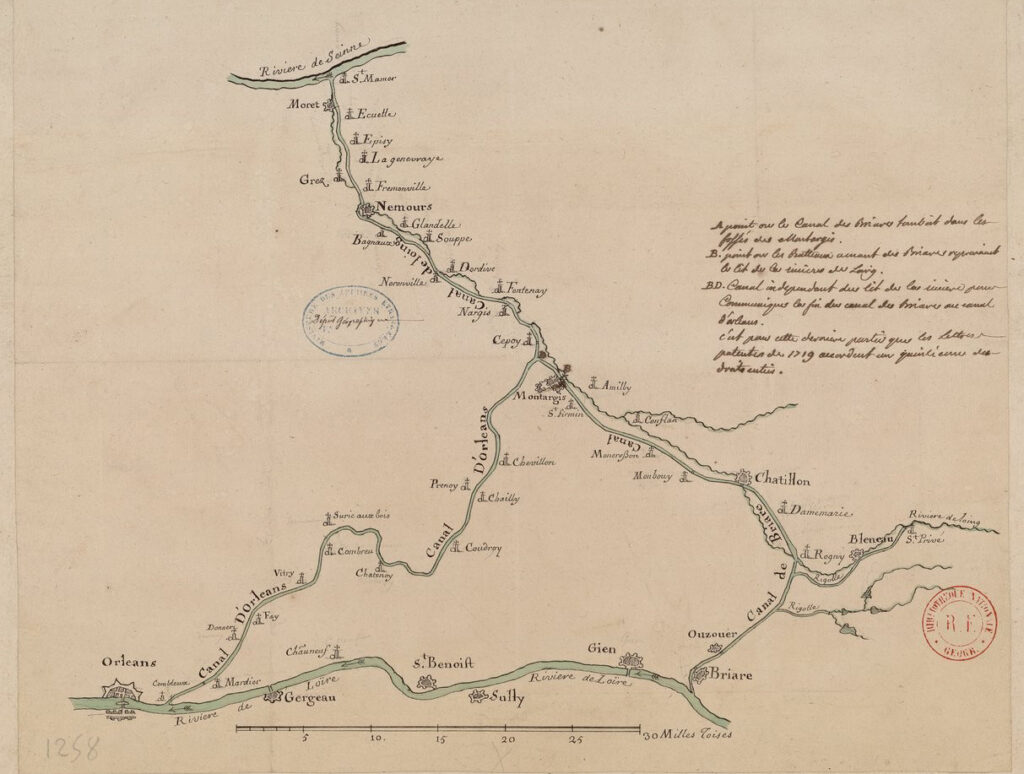 Riviere de Seinne
St. Mamer
Moret
Ecuelle
Episy
La genevraye
Grez
Fremonville
Nemours
Glandelle
Bagnaux
Souppe
Canal de loing
Dordive
Neronville
Fontenay
Nargis
Cepoy
B
Montargis
Amilly
St. firmin
Conflan
Canal de Briare
Moncresson
Monbouy
Chatillon
Damemarie
Riviere de loing
Bleneau
St. Privé
Rogny
Rigolle
Rigolle
Ouzouer
Briare
Canal D'Orleans
Chevillon
Prenoy
Chailly
Coudroy
Suric aux bois
Combreu
Chatenoy
Vitry
Canal D'Orleans
Fay
Donnery
Orleans
Combleux
Mardier
Chauneuf
Gergeau
Riviere de Loire
St. Benoist
Sully
Gien
Riviere de Loire
A point ou le Canal des Briares tomboit dans les
fossés des Montargis.
B. point ou les Batteaux venant des Briares
le lit de la de Loing.
BD. Canal independant du lit de la riviere pour
Communiquer la fin des canal des Briares au canal
d'orleans.
c'est pour cette derniere partie que les lettres
patentes de 1719 accordent un des
droits
MINISTERE DES AFFAIRES ETRANGERES
ARCHIVES
Dépôt Géographiq
BIBLIOTHEQUE NATIONALE
R.F.
GEOGR.
5 10. 15 20 25 30 Milles Toises
1258